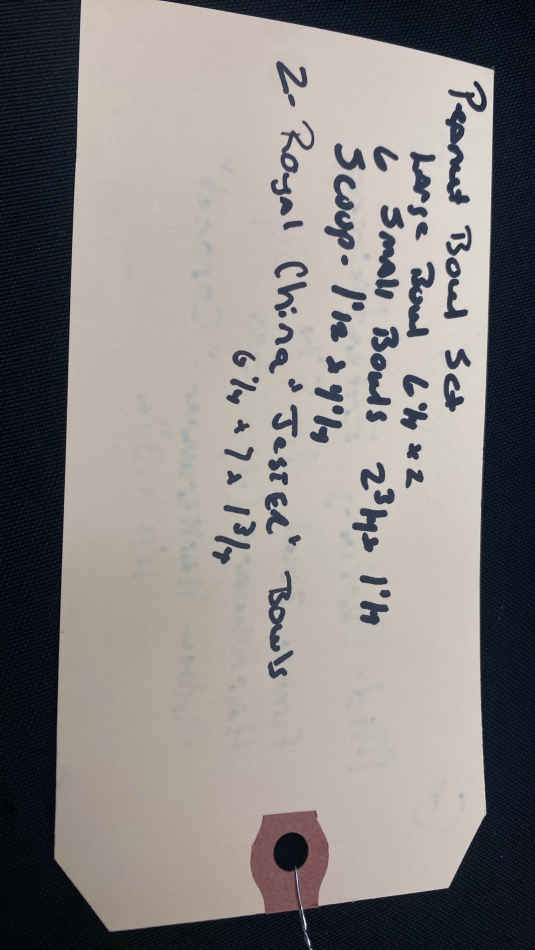 Peanut Bowl Set
Large Bowl 6 1/4 x 2
6 Small Bowls 2 3/4 x 1 1/4
Scoop - 1 1/2 x 4 1/4
2 - Royal China "JESTER" Bowls
6 1/4 x 7 x 1 3/4